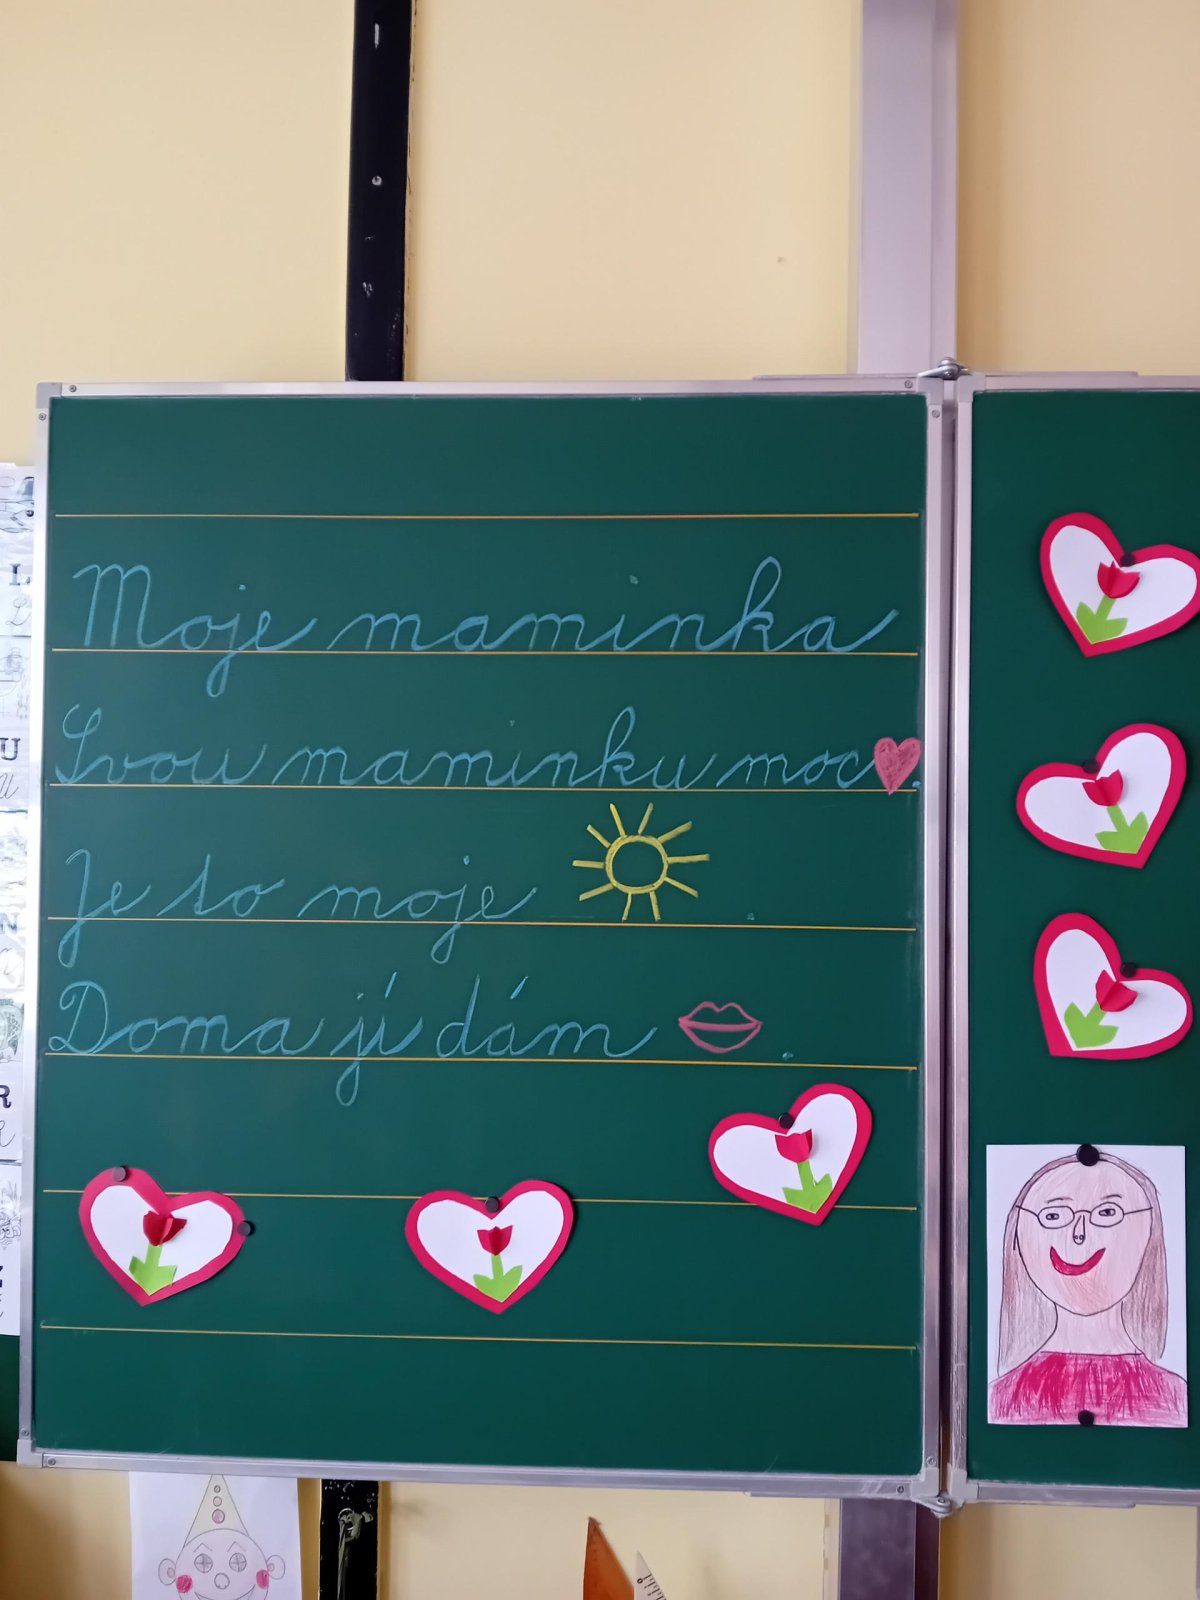 Moje maminka
Svou maminku moc .
Je to moje .
Doma jí dám .
L
U
N
R